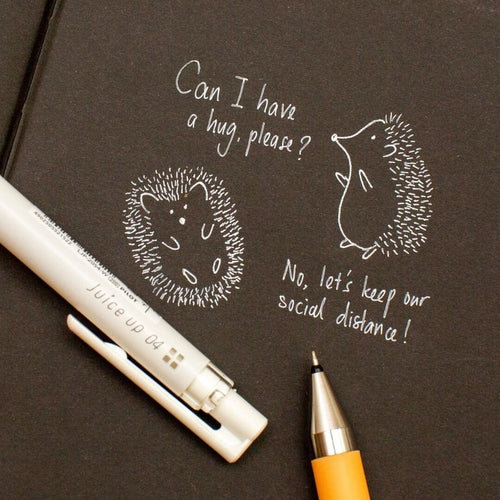 Can I have
a hug, please?
No, let's keep our
social distance!
Juice up 04